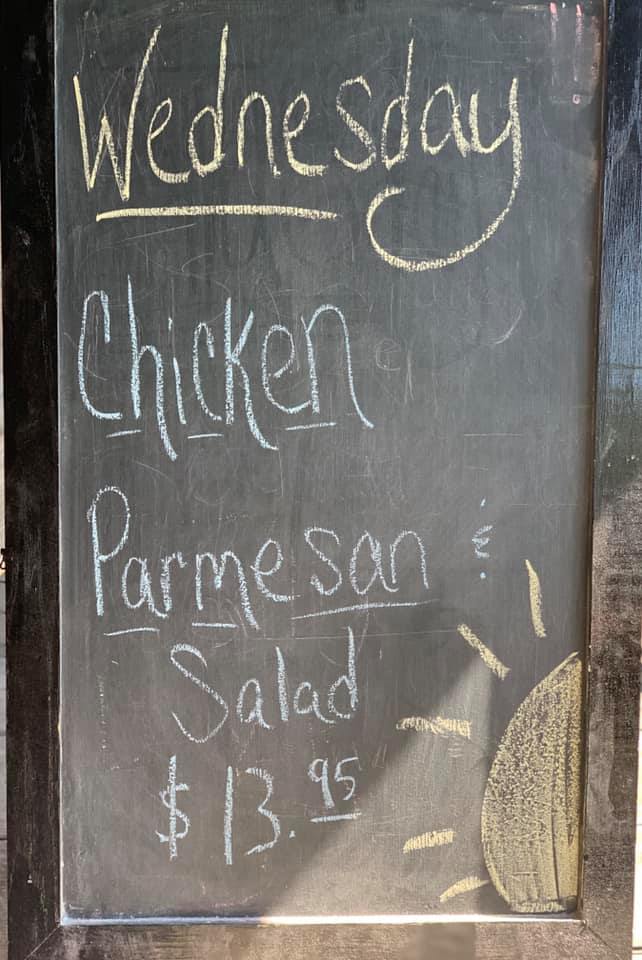 Wednesday
Chicken
Parmesan &
Salad
$13.95